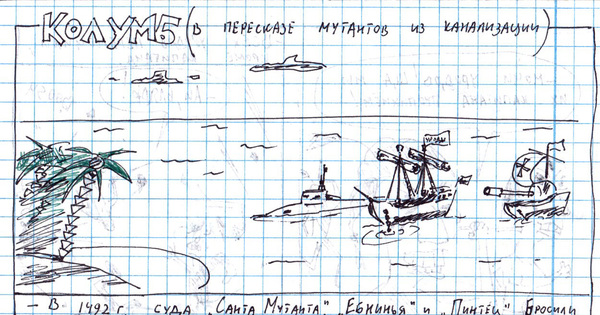 КОЛУМБ (В ПЕРЕСКАЗЕ МУТАНТОВ ИЗ КАНАЛИЗАЦИИ)
– В 1492 г. СУДА „САНТА МУТАНТА", „ЕБНИНЬЯ" И „ПИНТЕЦ" БРОСИЛИ